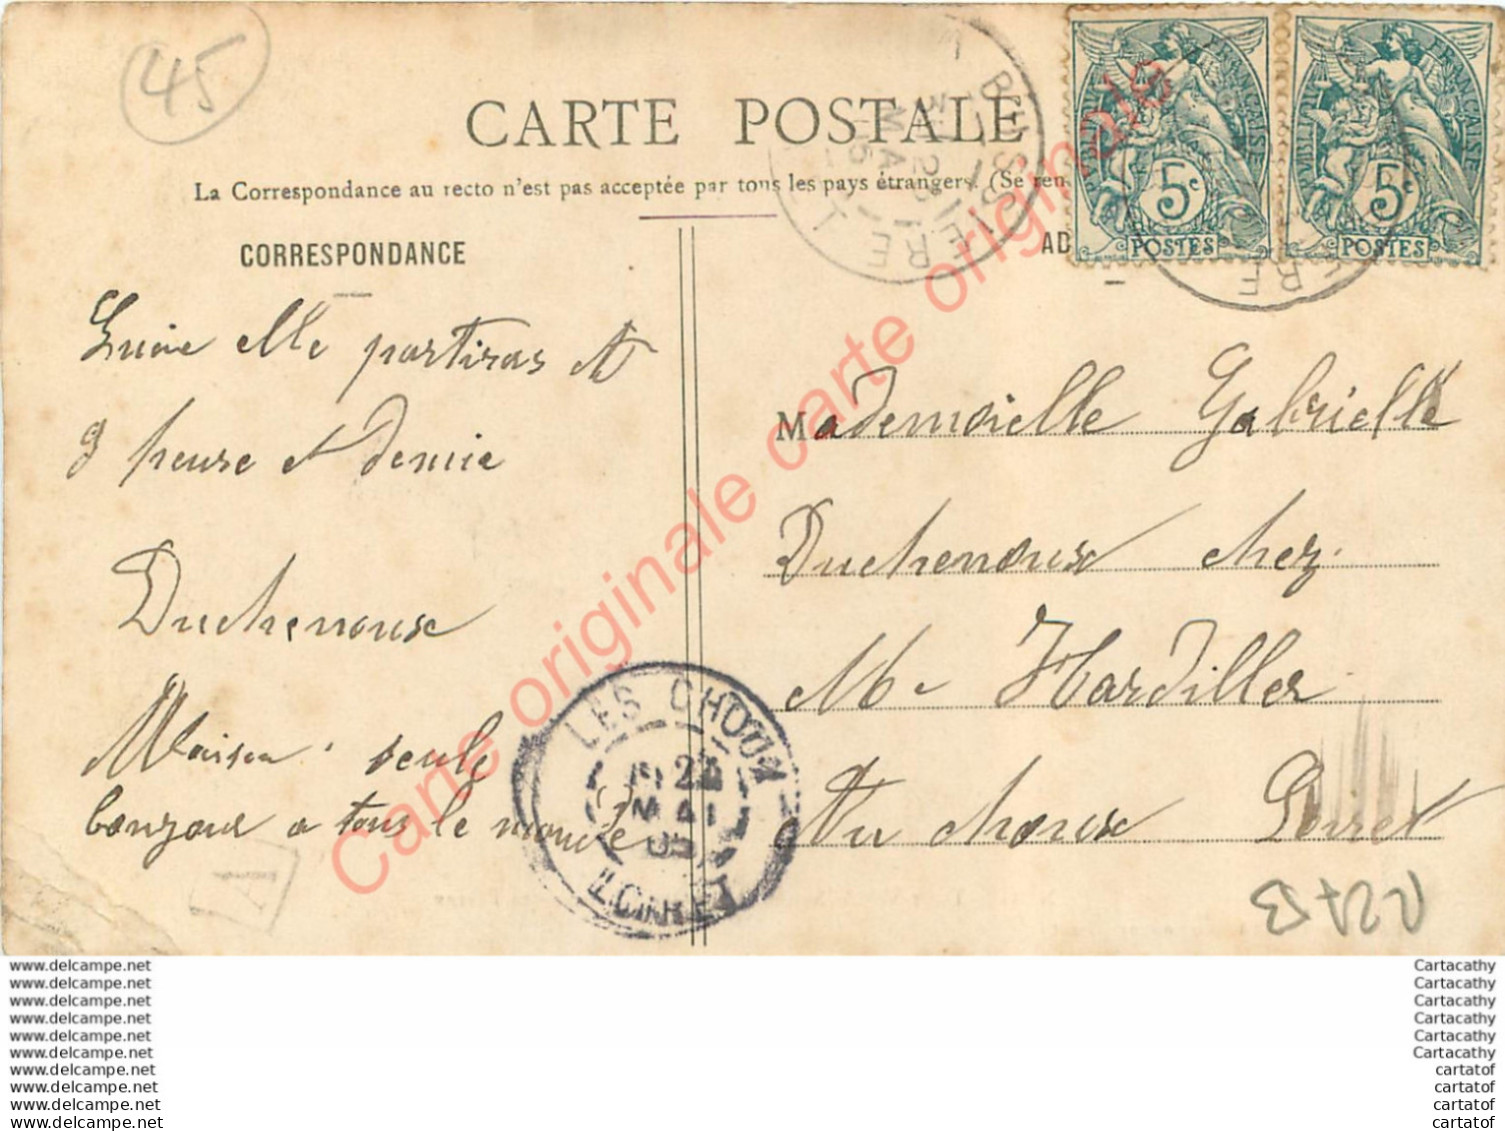 45
CARTE POSTALE
La Correspondance au recto n'est pas acceptée par tous les pays étrangers. (Se ren
CORRESPONDANCE
AD
BUSSIERE
MAI
RÉPUBLIQUE FRANÇAISE
5c
POSTES
FRANÇAISE
5c
POSTES
elle partiras
9 heure et demie
Duchenoux
Maison seule
bonzour a tous le monde
Mademoiselle Gabrielle
Duchenoux chez
Hardiller
Au choux Loiret
LES CHOUX
27
MAI
05
LOIRET
A
Carte originale carte originale carte originale
www.delcampe.net
www.delcampe.net
www.delcampe.net
www.delcampe.net
www.delcampe.net
www.delcampe.net
www.delcampe.net
www.delcampe.net
www.delcampe.net
www.delcampe.net
Cartacathy
Cartacathy
Cartacathy
Cartacathy
Cartacathy
Cartacathy
cartatof
cartatof
cartatof
cartatof